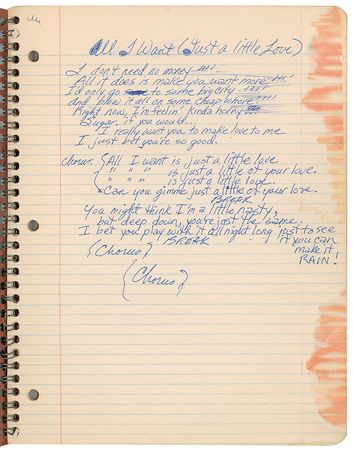 All I Want (Just a little Love)
I don't need no money
All it does is make you want more
I'd only go to some big city
and blow it all on some cheap whore
Right now, I'm feelin' kinda horny
Sugar, if you would..
I really want you to make love to me
I just bet you're so good.
chorus: All I want is just a little love
" " " is just a little of your love.
" " " is just a little love
Can you gimme just a little of your love.
BREAK
You might think I'm a little nasty,
but deep down, you're just the same.
I bet you play with it all night long just to see
BREAK if you can
{Chorus} make it
RAIN!
{Chorus}